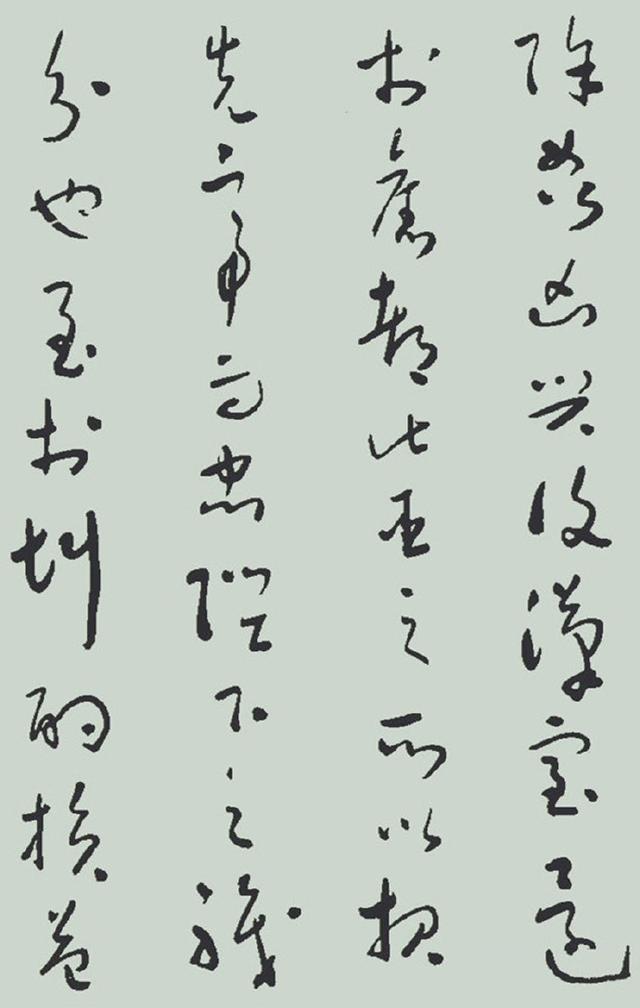 除姦凶興復漢室還
於舊都此臣之所以報
先帝而忠陛下之職
分也至於斟酌損益